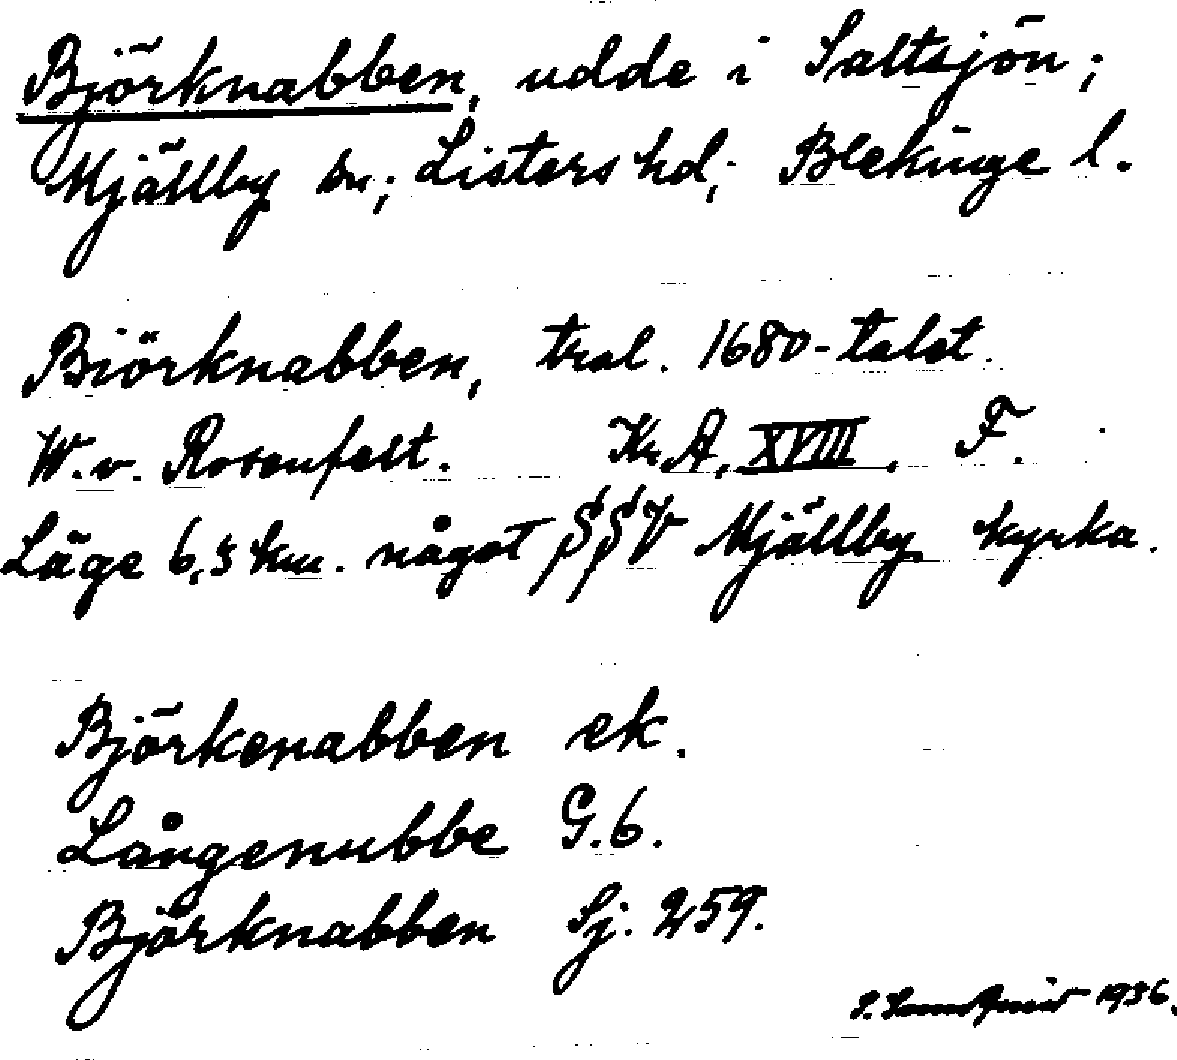 Björknabben, udde i Saltsjön;
Mjällby sn; Listers hd; Blekinge l.
Biörknabben, tral. 1680-talet.
W. v. Rosenfelt. Kr.A. XVIII, F.
Läge 6,5 km. något SSV Mjällby kyrka.
Björkenabben ek.
Långenubbe G.6.
Björknabben Sj. 259.
1936.